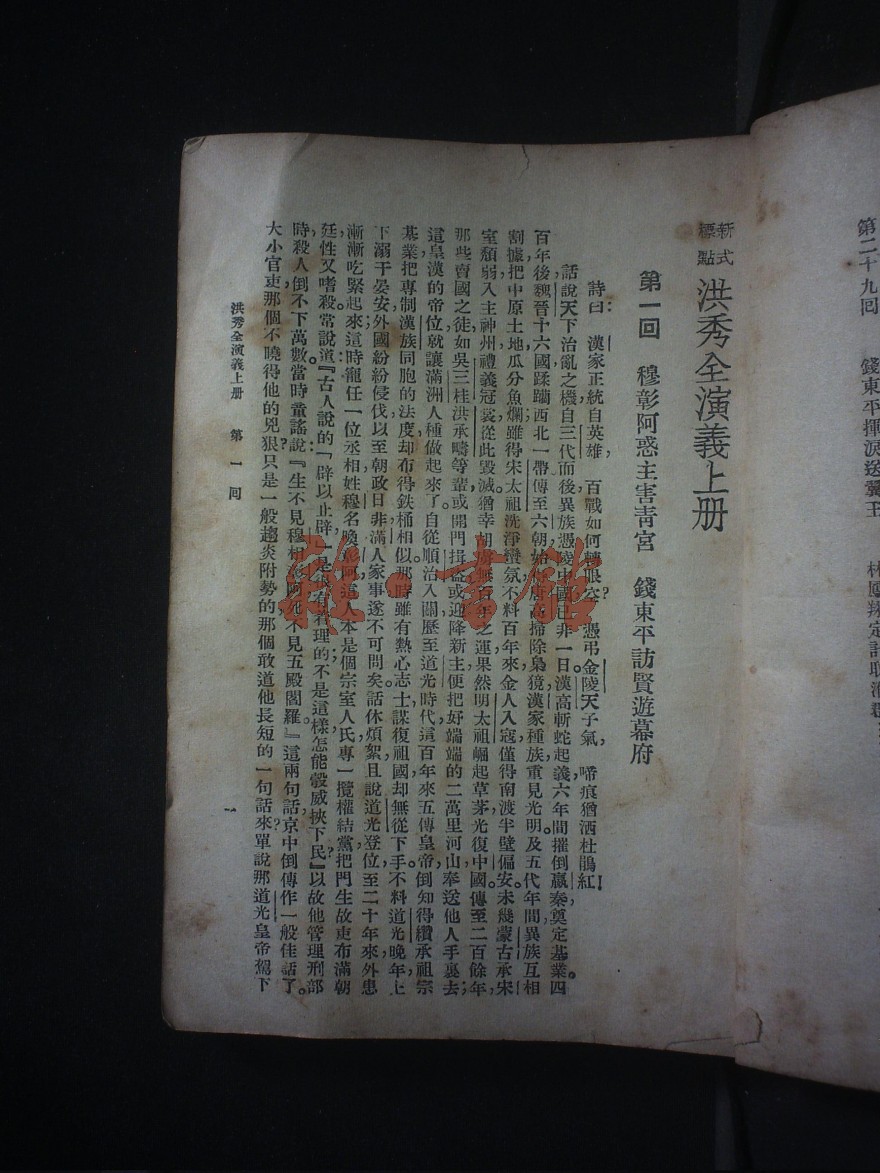 第二十九回　錢東平揮淚送翼王　林鳳翔定計取淮郡
新式標點 洪秀全演義上册
第一回　穆彰阿惑主害青宮　錢東平訪賢遊幕府
詩曰：漢家正統自英雄，百戰如何轉眼空？憑弔金陵天子氣，啼痕猶洒杜鵑紅！
話說天下治亂之機，自三代而後，異族憑陵中國，已非一日。漢高斬蛇起義，六年間摧倒嬴秦，奠定基業。四
百年後，魏晉十六國蹂躪西北一帶，傳至六朝，始由唐高掃除梟獍，漢家種族重見光明。及五代年間，異族互相
割據，把中原土地，瓜分魚爛。雖得宋太祖洗淨蠻氛，不料百年來，金人入寇，僅得南渡半壁偏安。未幾蒙古承宋
室頹弱，入主神州，禮義冠裳，從此毀滅。猶幸胡虜無百年之運，果然明太祖崛起草茅，光復中國。傳至二百餘年，
那些賣國之徒，如吳三桂洪承疇等輩，或開門揖盜，或迎降新主，便把好端端的二萬里河山，奉送他人手裏去；
這皇漢的帝位，就讓滿洲人種做起來了。自從順治入關，歷至道光時代，這百年來五傳皇帝，倒知得纘承祖宗
基業，把專制漢族同胞的法度，却布得鉄桶相似。那時雖有熱心志士，謀復祖國，却無從下手。不料道光晚年，上
下溺于晏安，外國紛紛侵伐，以至朝政日非，滿人家事，遂不可問矣。話休煩絮，且說道光登位，至二十年來，外患
漸漸吃緊起來；這時寵任一位丞相，姓穆名喚彰阿，這人本是個宗室人氏，專一攬權結黨，把門生故吏，布滿朝
廷；性又嗜殺，常說道：『古人說的「辟以止辟，」是最有着理的；不是這樣，怎能彀威挾下民？』以故他管理刑部
時，殺人倒不下萬數，當時童謠說：『生不見穆相國，死不見五殿閻羅。』這兩句話，京中倒傳作一般佳話了。
大小官吏那個不曉得他的兇狠？只是一般趨炎附勢的，那個敢道他長短的一句話來？單說那道光皇帝駕下
洪秀全演義上册　第一回
一